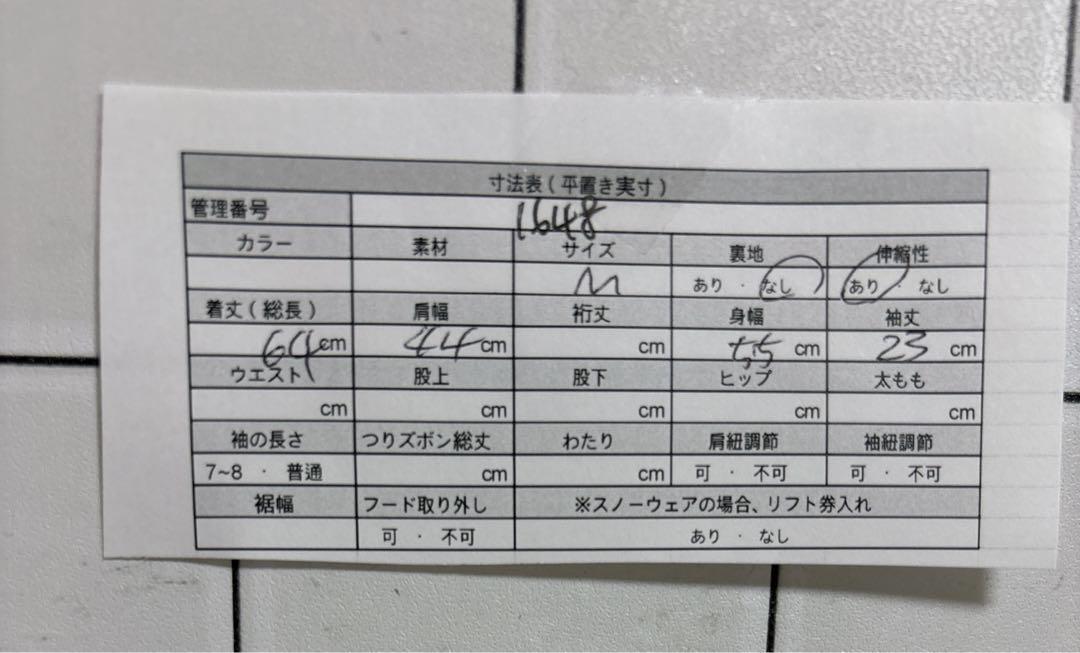 寸法表(平置き実寸)
管理番号 1648
カラー 素材 サイズ 裏地 伸縮性
M あり ・ なし あり ・ なし
着丈(総長) 肩幅 裄丈 身幅 袖丈
64 cm 44 cm cm 55 cm 23 cm
ウエスト 股上 股下 ヒップ 太もも
cm cm cm cm cm
袖の長さ つりズボン総丈 わたり 肩紐調節 袖紐調節
7~8 ・ 普通 cm cm 可 ・ 不可 可 ・ 不可
裾幅 フード取り外し ※スノーウェアの場合、リフト券入れ
可 ・ 不可 あり ・ なし